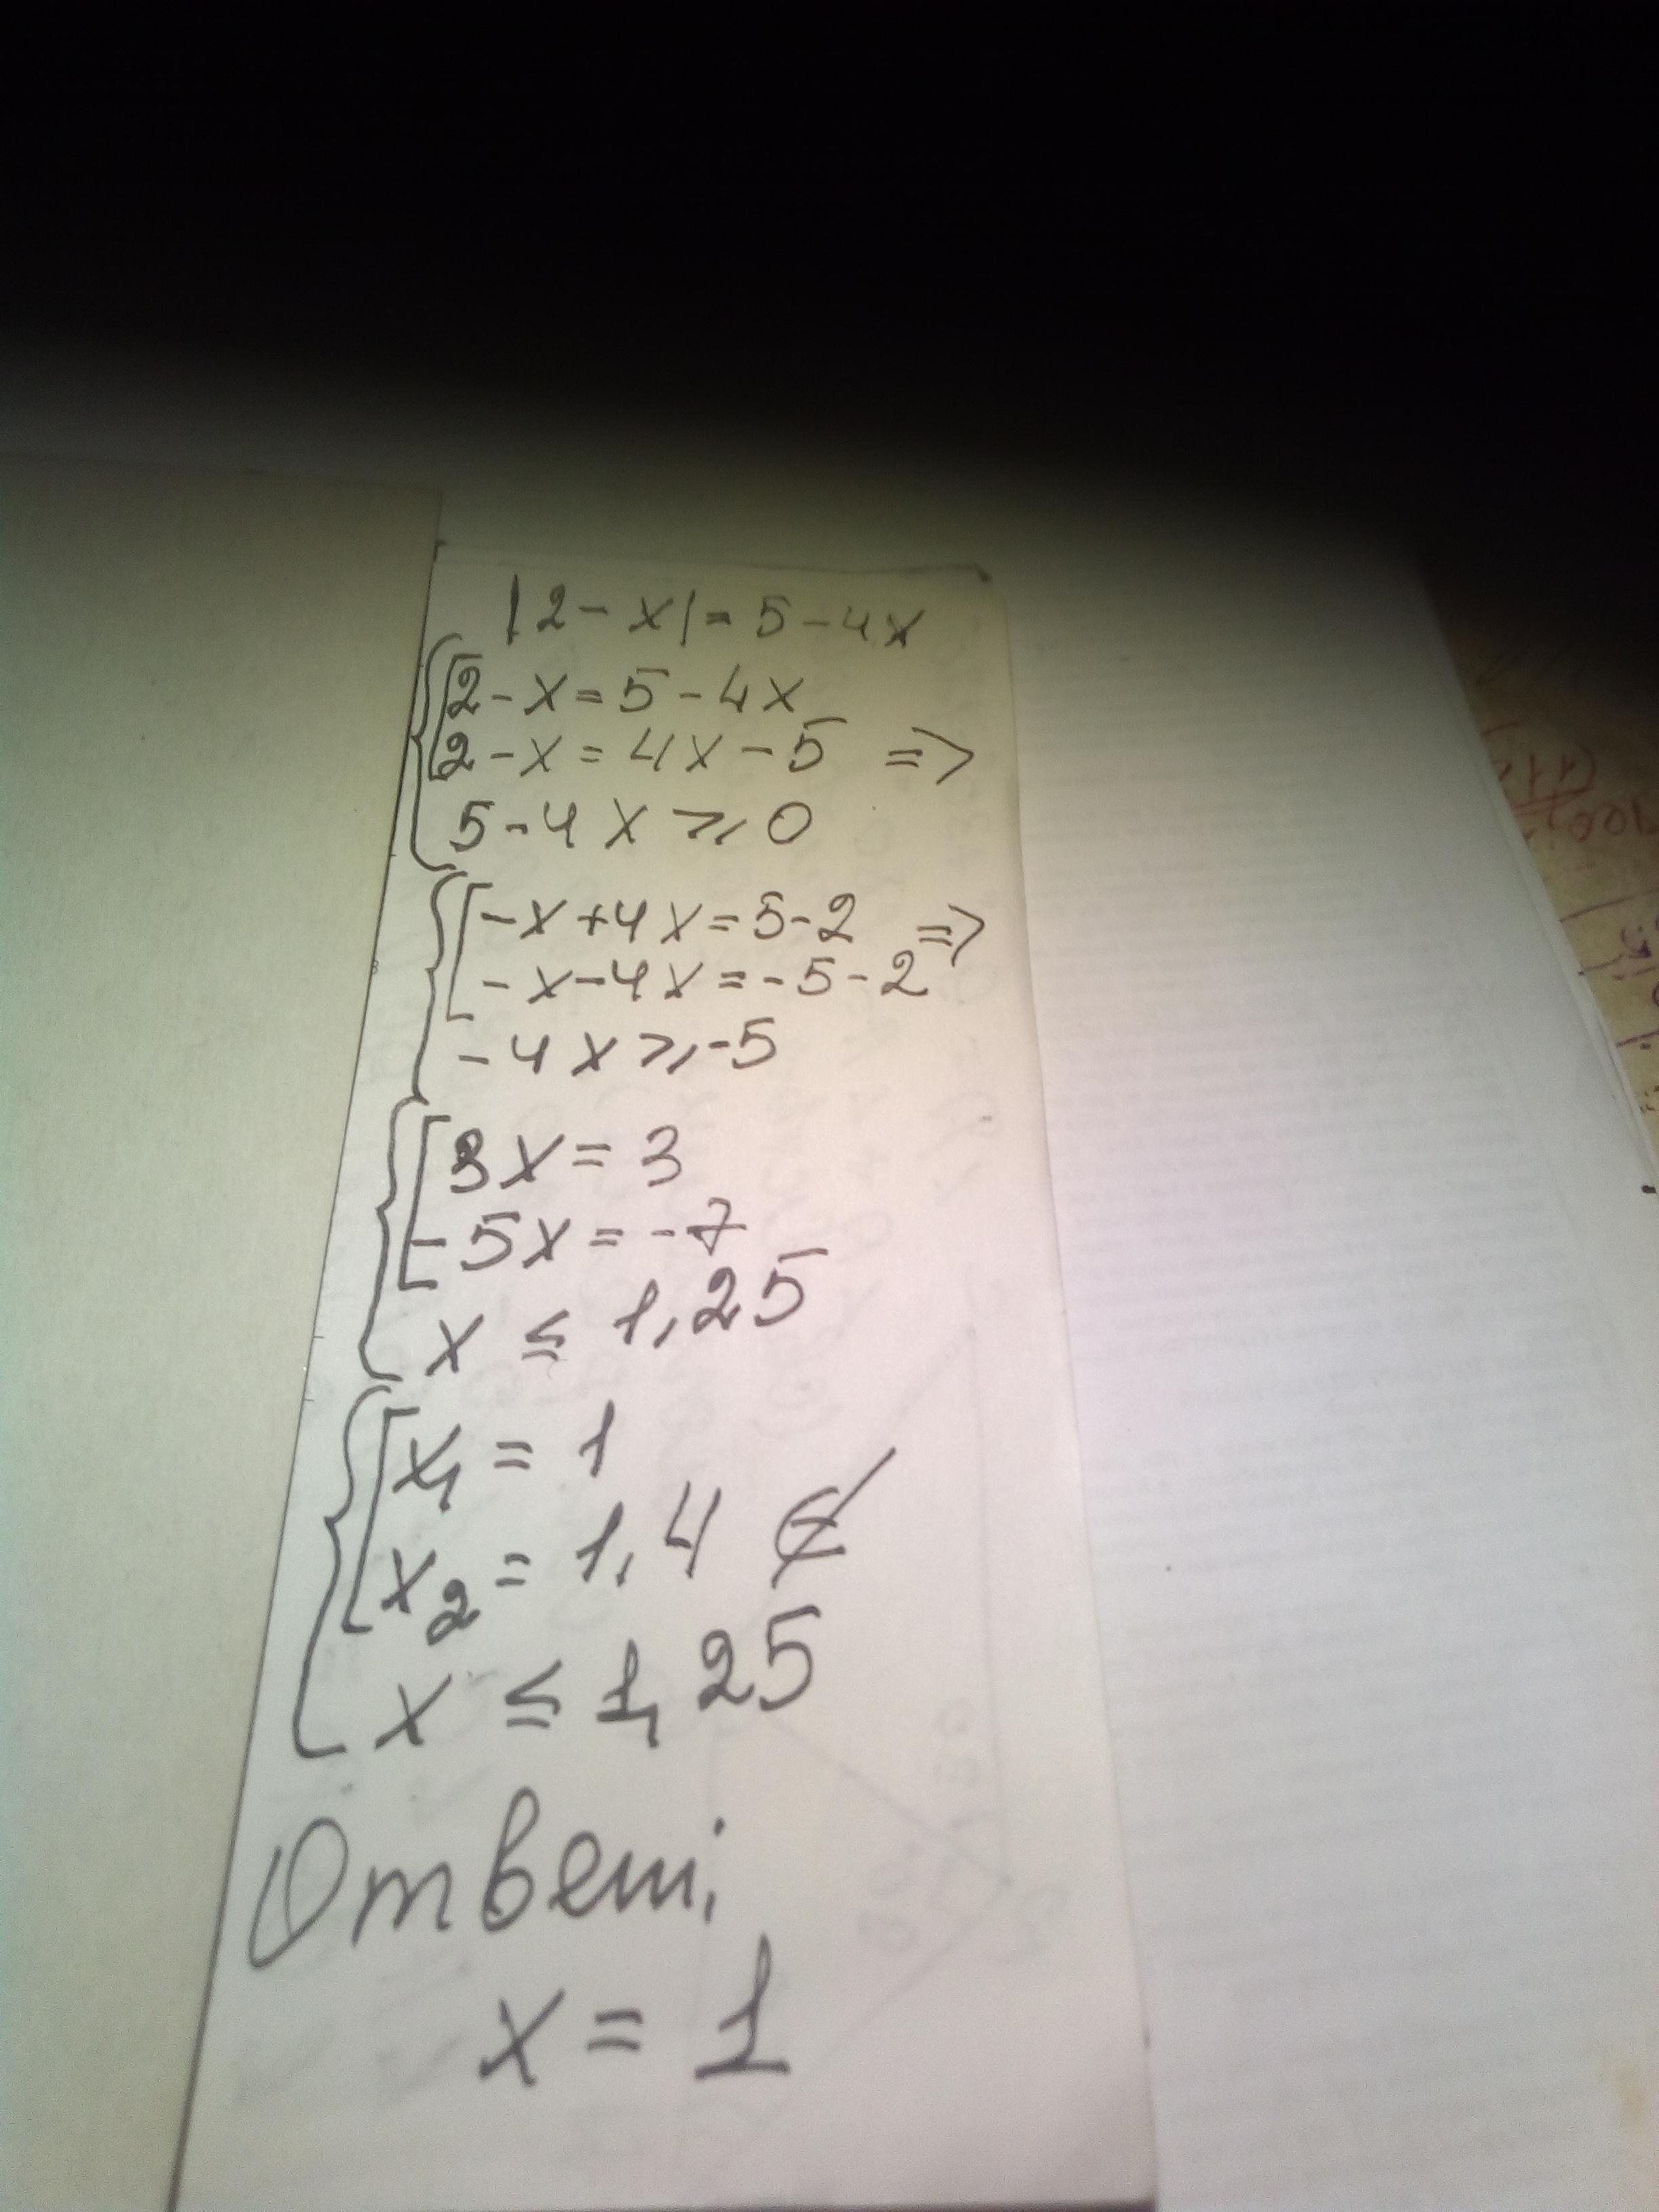 |2-x|=5-4x
2-x=5-4x
2-x=4x-5 =>
5-4x⩾0
-x+4x=5-2 =>
-x-4x=-5-2
-4x⩾-5
3x=3
-5x=-7
x≤1,25
x₁=1
x₂=1,4 ∉
x≤1,25
Ответ:
x=1